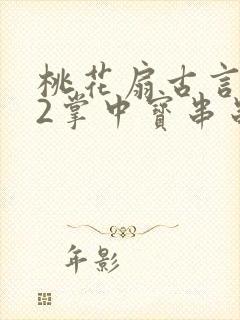 桃花扇古言
2掌中寶串
年影